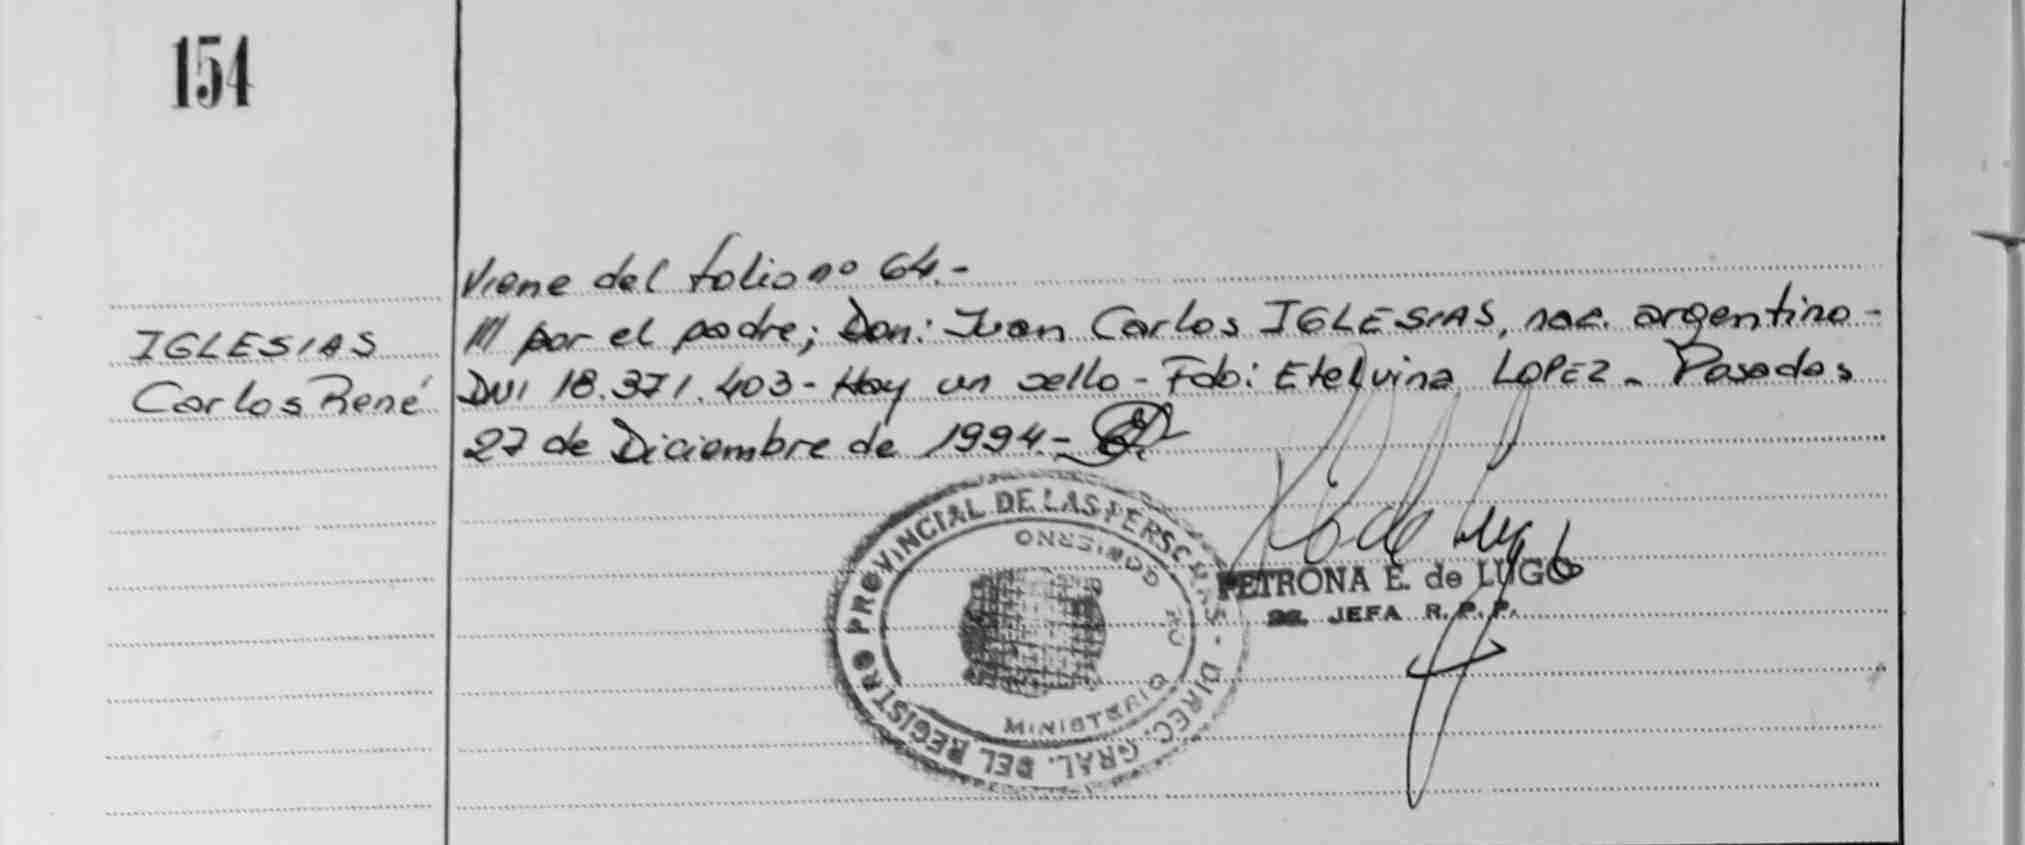 154
Viene del folio nº 64.-
IGLESIAS
Carlos René
/// por el padre; Don: Juan Carlos IGLESIAS, nac. argentino-
DNI 18.371.403- Hay un sello- Fdo: Etelvina LOPEZ - Posadas
27 de Diciembre de 1994.-
DIREC. GRAL. DEL REGISTRO PROVINCIAL DE LAS PERSONAS -
MINISTERIO DE GOBIERNO
P. de Lugo
PETRONA E. de LUGO
JEFA R. P. P.